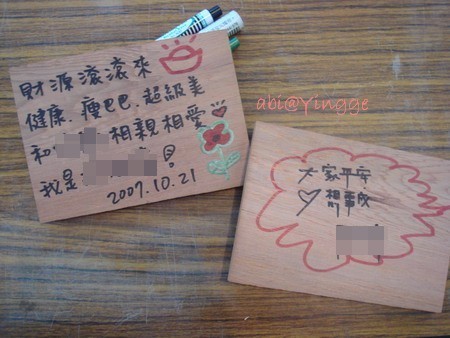 財源滾滾來
健康.瘦巴巴.超級美
和 相親相愛
我是
2007.10.21
abi@Yingge
大家平安
想事成